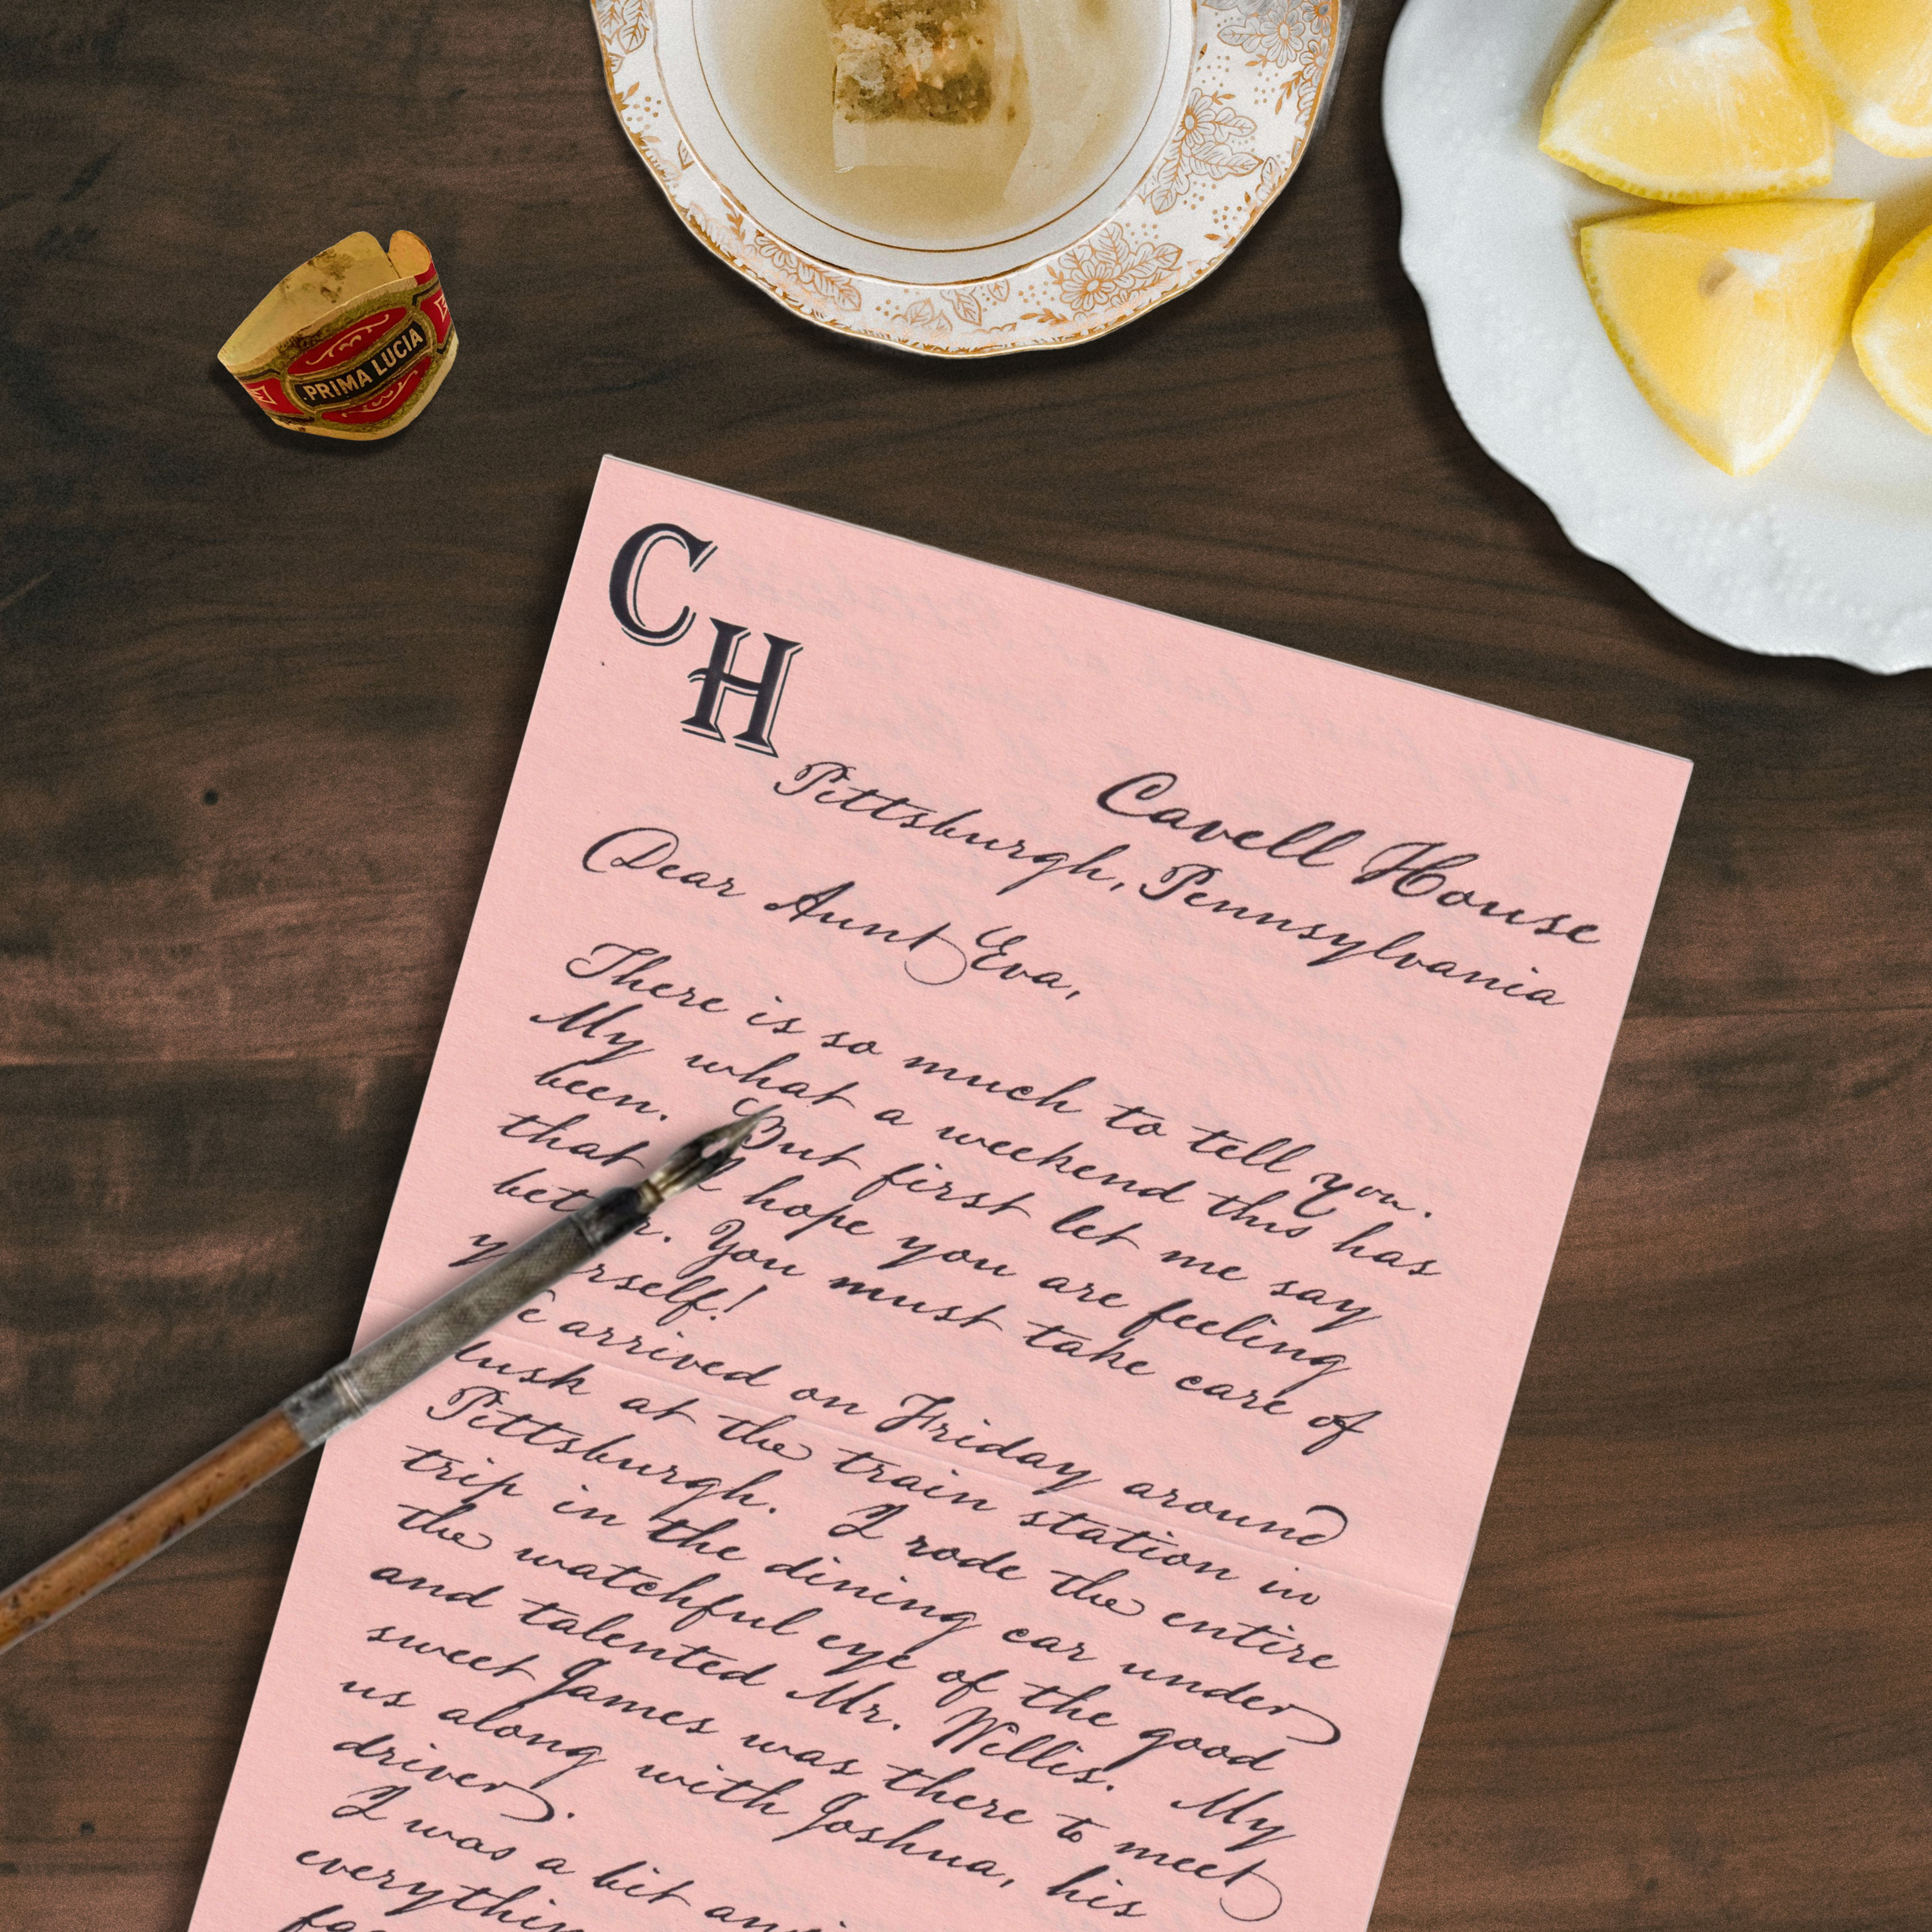 PRIMA LUCIA
C
H
Cavell House
Pittsburgh, Pennsylvania
Dear Aunt Eva,
There is so much to tell you.
My what a weekend this has
been. But first let me say
that I hope you are feeling
better. You must take care of
yourself!
We arrived on Friday around
dusk at the train station in
Pittsburgh. I rode the entire
trip in the dining car under
the watchful eye of the good
and talented Mr. Willis. My
sweet James was there to meet
us along with Joshua, his
driver.
I was a bit